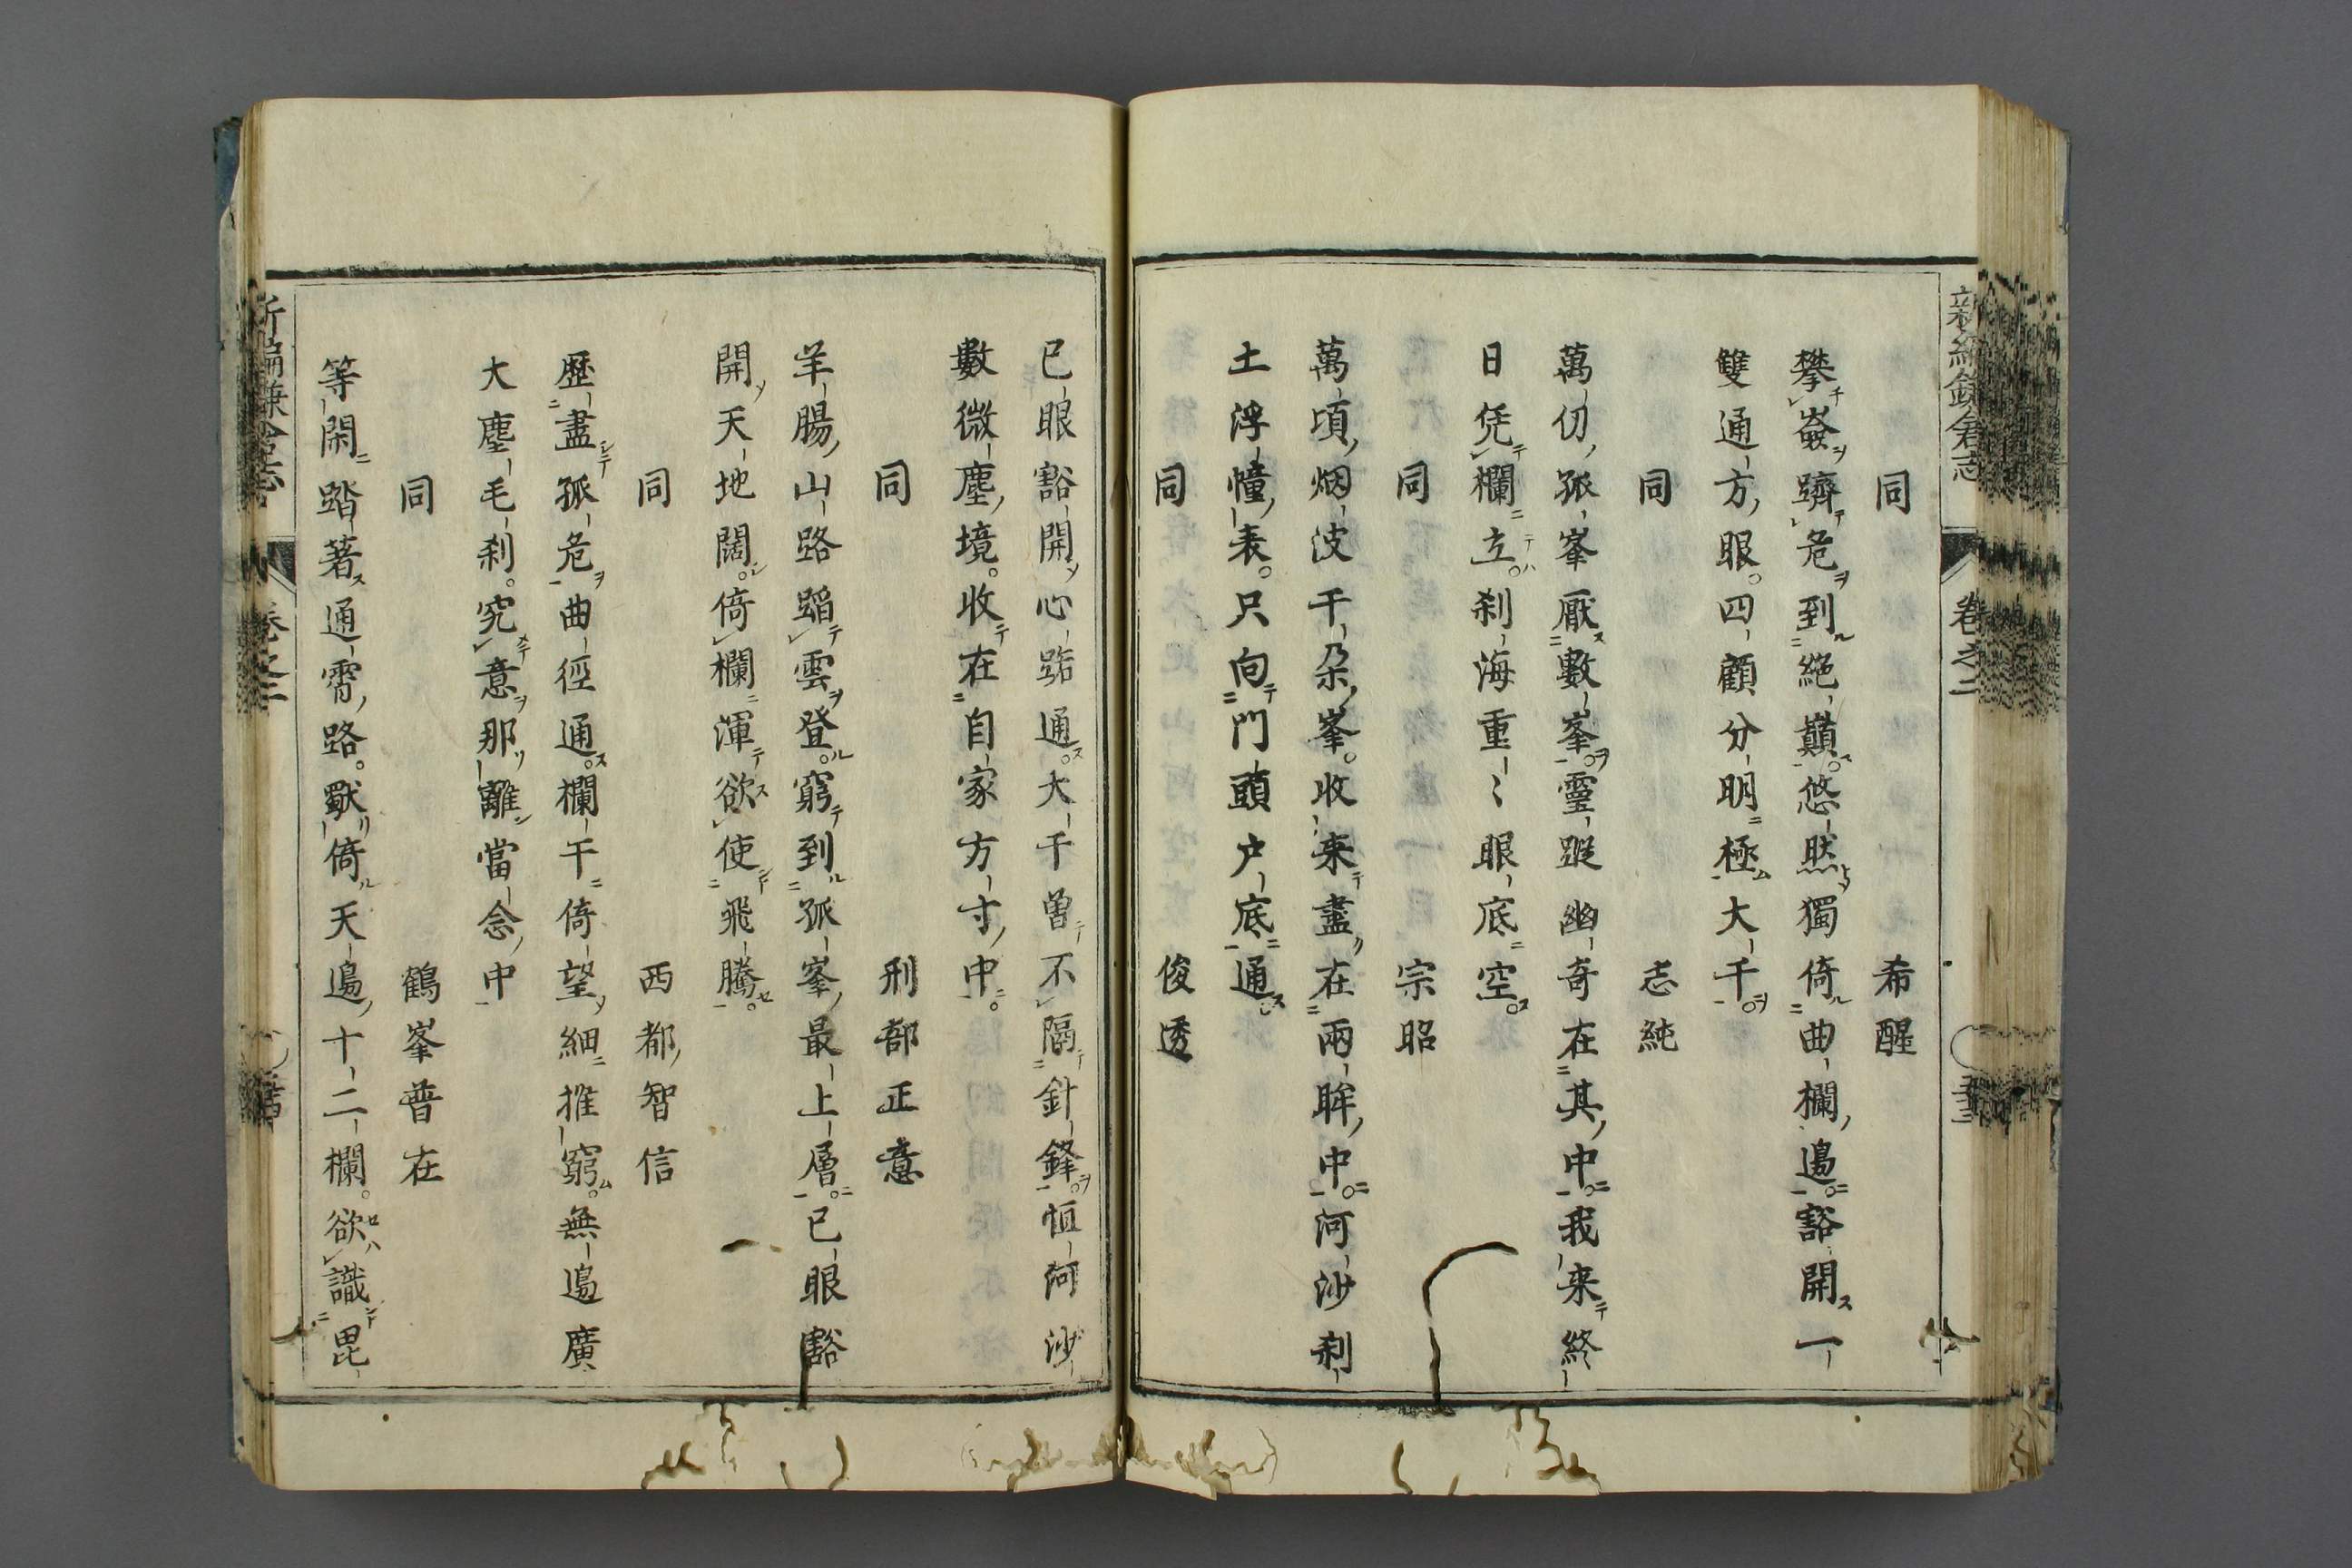 同　希醒
攀嶔躋危到絕巔悠然獨倚曲欄邉豁開一
雙通方眼四顧分明極大千
同　志純
萬仞孤峯厭數峯靈蹤幽奇在其中我来終
日凭欄立刹海重〻眼底空
同　宗昭
萬頃烟波千朶峯收来盡在兩眸中河沙刹
土浮幢表只向門頭户底通
同　俊透
已眼豁開心路通大千曾不隔針鋒恒河沙
數微塵境收在自家方寸中
同　刑部正意
羊腸山路蹈雲登窮到孤峯最上層已眼豁
開天地闊倚欄渾欲使飛騰
同　西都智信
歷盡孤危曲徑通欄干倚望細推窮無邉廣
大塵毛刹究意那離當念中
同　鶴峯普在
等閑踏著通霄路獸倚天邉十二欄欲識毘
新編鎌倉志
卷之二